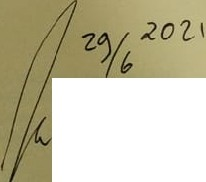 29/6 2021